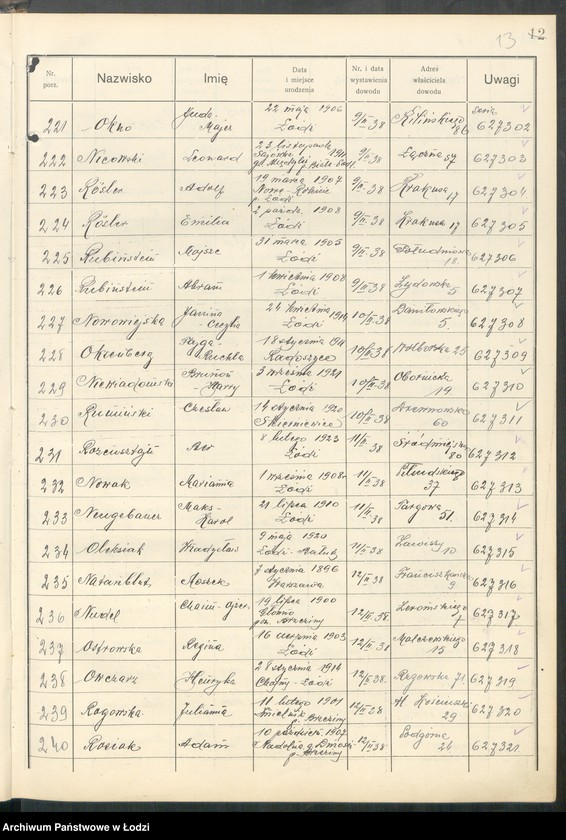 13 12
Nr. porz. Nazwisko Imię Data i miejsce urodzenia Nr. i data wystawienia dowodu Adres właściciela dowodu Uwagi
221 Okno Juda-Majer 22 maja 1906 Łódź 9/II 38 Kilińskiego 86 serja 627302
222 Nicowski Leonard 23 listopada 9/II-38 Łączna 57 627303
223 Rösler Adolf 19 marca 1907 Nowe-Rokicie p. Łódź 9/II-38 Krakusa 17 627304
224 Rösler Emilia 2 paźdz. 1908 Łódź 9/II-38 Krakusa 17 627305
225 Rubinstein Mojsze 31 marca 1905 Łódź 9/II-38 Południowa 18. 627306
226 Rubinstein Abram 1 kwietnia 1908 Łódź 9/II-38 Żydowska 5 627307
227 Nowowiejska Janina 24 kwietnia 1914 Łódź 10/II-38 5. 627308
228 Okrenberg Ruchla 18 stycznia Radoszyce 10/II-38 Wolborska 25 627309
229 Niewiadomski Brunon Harry 3 września 1921 Łódź 10/II-38 Obornicka 19 627310
230 Rumiński Czesław 14 stycznia 1920 Skierniewice 10/II-38 60 627311
231 8 lutego 1923 Łódź 11/II 38 Śródmiejska 80 627312
232 Nowak Marianna 1 września 1908r. Łódź 11/II-38 Piłsudskiego 37 627313
233 Neugebauer Maks-Karol 21 lipca 1910 Łódź 11/II-38 Targowa 51. 627314
234 Oleksiak Władysław 9 maja 1920 Łódź-Bałuty 11/II-38 Zawiszy 10 627315
235 Natanblut Moszek 7 stycznia 1896 Warszawa 12/II-38 Franciszkańska 9 627316
236 Nudel Chaim-Ojzer. 19 lipca 1900 Głowno pow. Brzeziny 12/II-38. Żeromskiego 627317
237 Ostrowska Regina 16 sierpnia 1903 Łódź 12/II-38 Malczewskiego 15 627318
238 Owczarz Henryka 28 stycznia 1914 Chojny-Łódź 12/II-38. Rzgowska 71. 627319
239 Rogowska Julianna 11 lutego 1901 p. Brzeziny 12/II-38 29 627320
240 Rosiak Adam 10 paźdz. 1907 p. Brzeziny 12/II-38 Podgórna 24 627321
Archiwum Państwowe w Łodzi